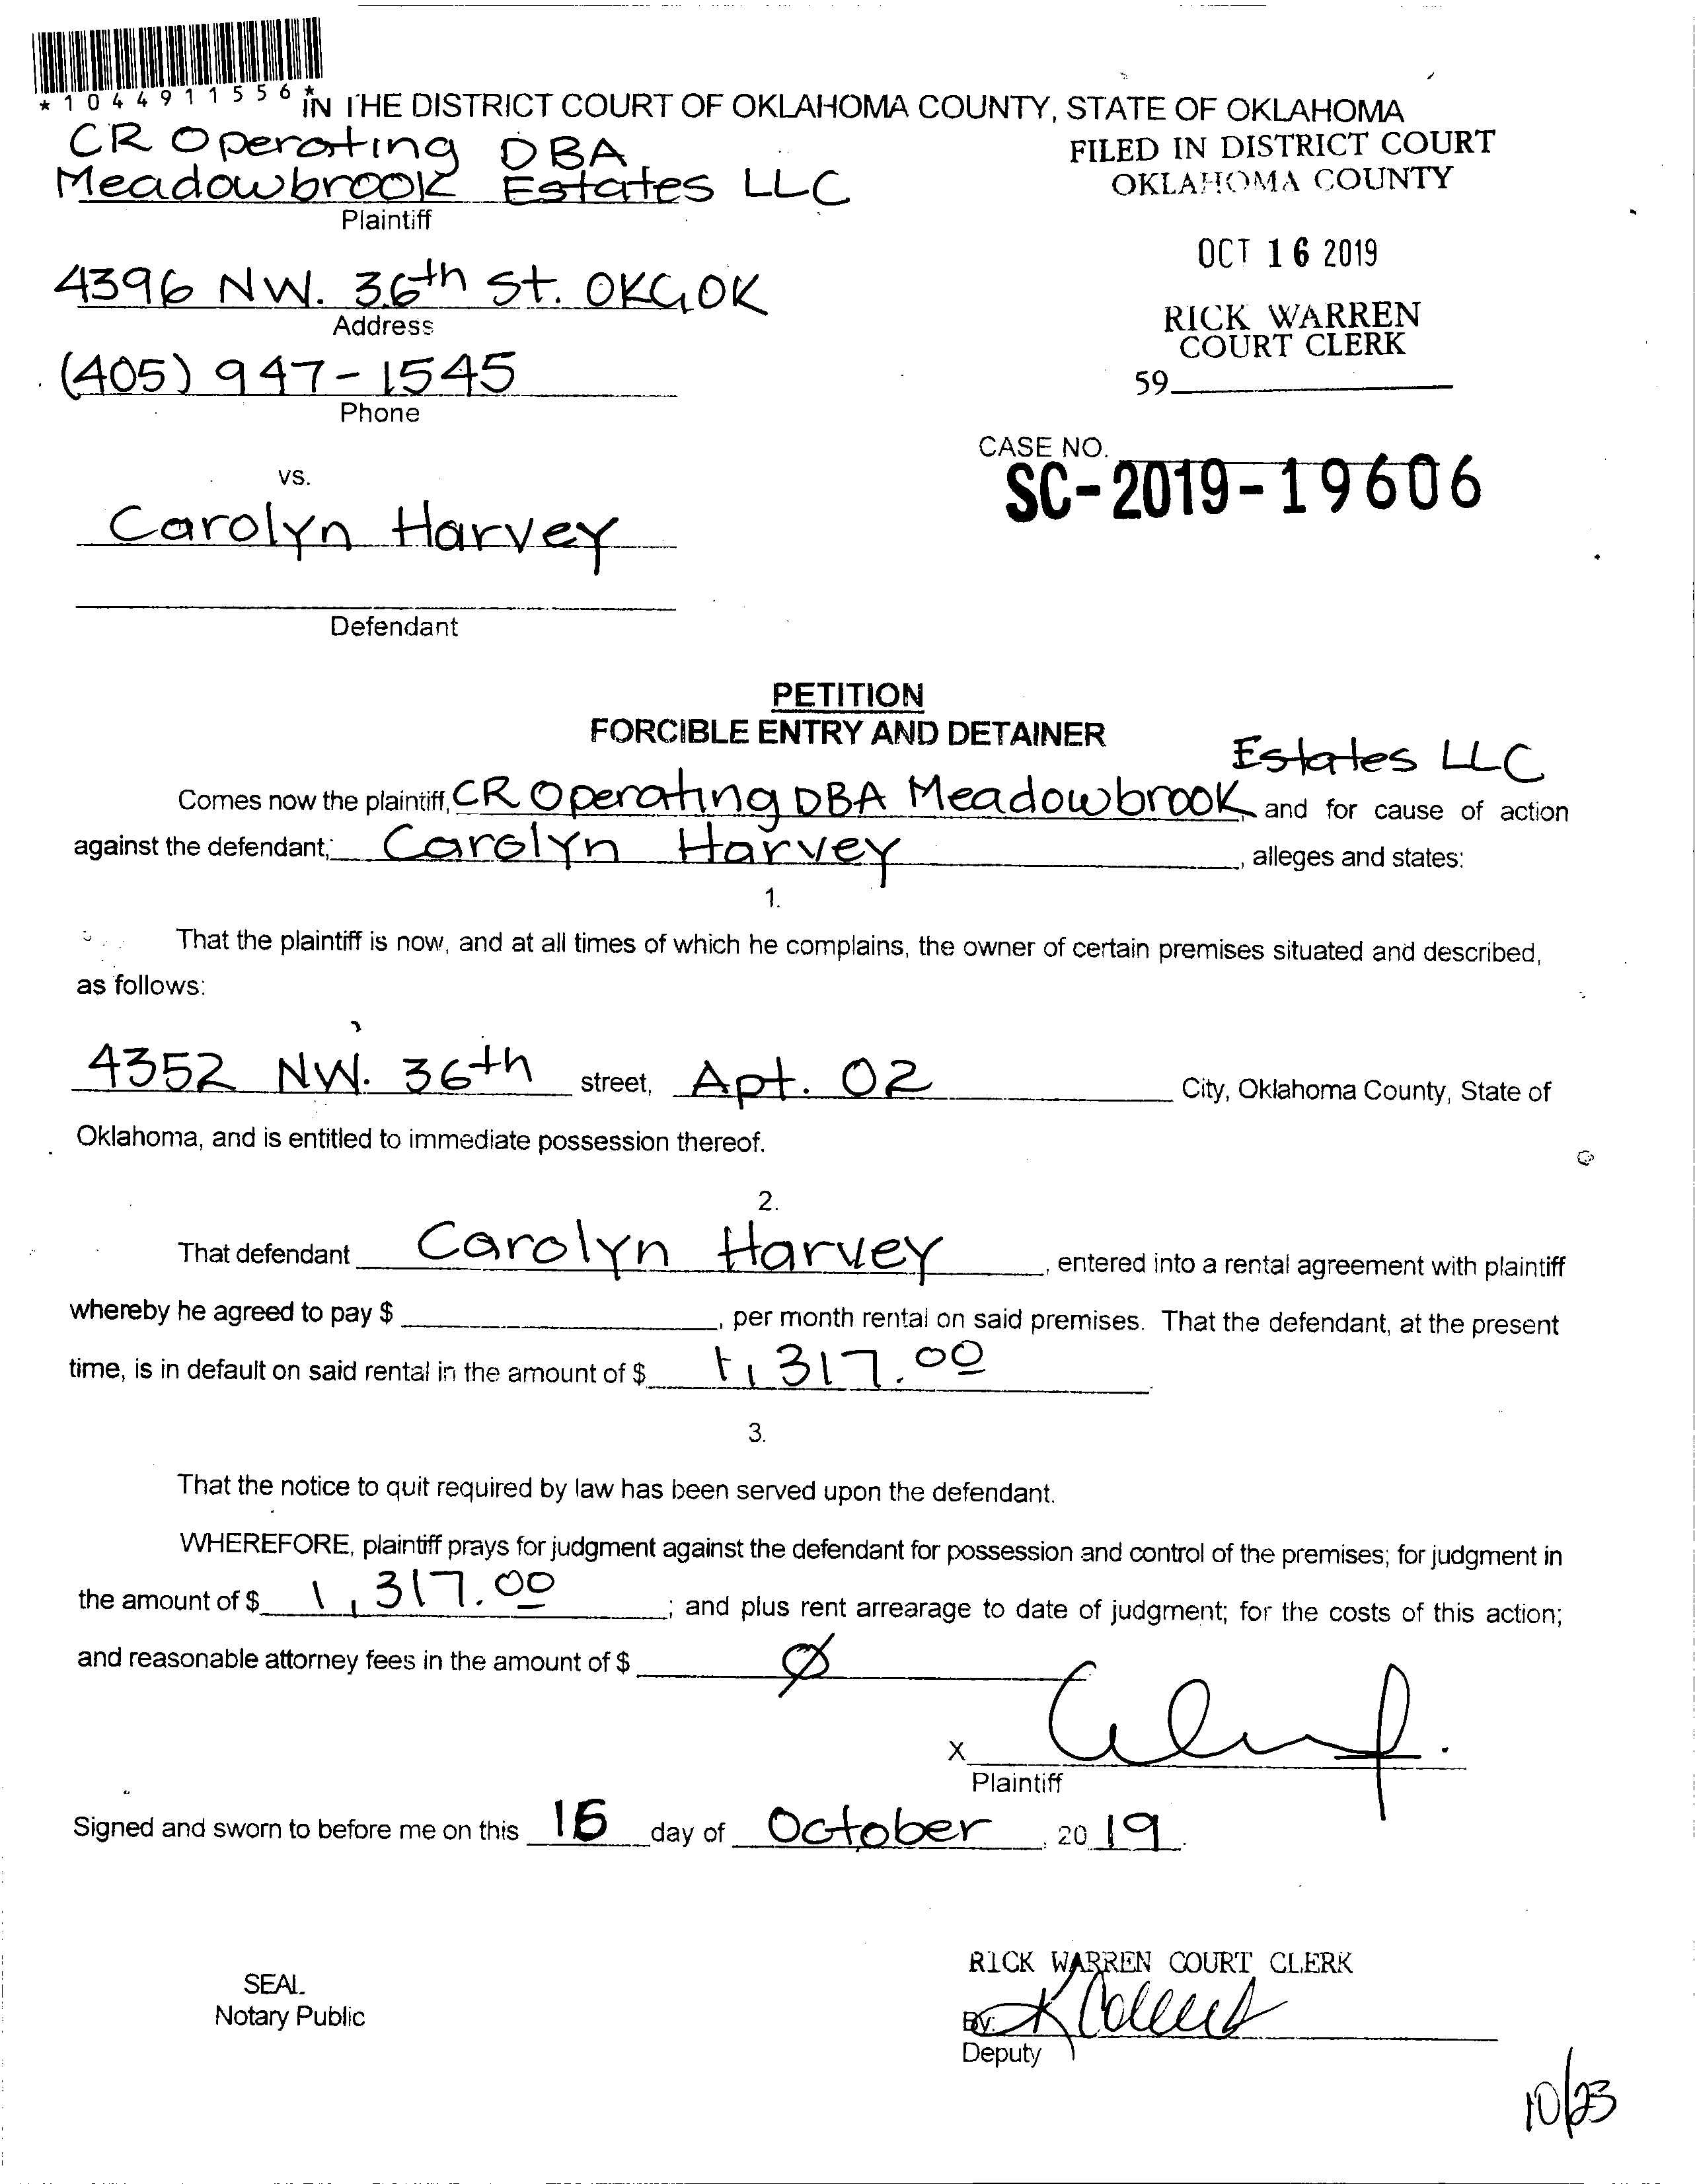 *1044911556*
IN THE DISTRICT COURT OF OKLAHOMA COUNTY, STATE OF OKLAHOMA
CR Operating DBA
Meadowbrook Estates LLC
Plaintiff
FILED IN DISTRICT COURT
OKLAHOMA COUNTY
OCT 16 2019
4396 NW. 36th St. OKC, OK
Address
RICK WARREN
COURT CLERK
(405) 947-1545
Phone
59
CASE NO.
SC-2019-19606
vs.
Carolyn Harvey
Defendant
PETITION
FORCIBLE ENTRY AND DETAINER
Estates LLC
Comes now the plaintiff, CR Operating DBA Meadowbrook, and for cause of action
against the defendant; Carolyn Harvey, alleges and states:
1.
That the plaintiff is now, and at all times of which he complains, the owner of certain premises situated and described,
as follows:
4352 NW. 36th street, Apt. 02 City, Oklahoma County, State of
Oklahoma, and is entitled to immediate possession thereof.
2.
That defendant Carolyn Harvey, entered into a rental agreement with plaintiff
whereby he agreed to pay $, per month rental on said premises. That the defendant, at the present
time, is in default on said rental in the amount of $ 1,317.00
3.
That the notice to quit required by law has been served upon the defendant.
WHEREFORE, plaintiff prays for judgment against the defendant for possession and control of the premises; for judgment in
the amount of $ 1,317.00; and plus rent arrearage to date of judgment; for the costs of this action;
and reasonable attorney fees in the amount of $ Ø
X
Plaintiff
Signed and sworn to before me on this day of October, 2019.
RICK WARREN COURT CLERK
SEAL
Notary Public
By:
Deputy
10/23